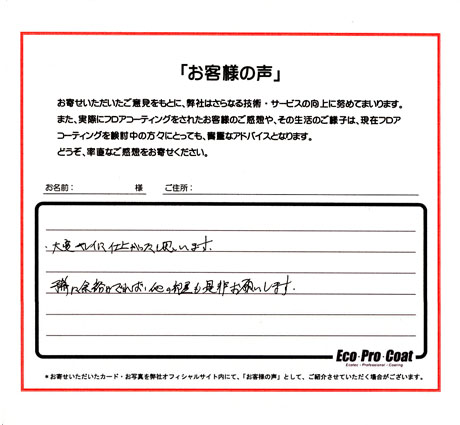 「お客様の声」
お寄せいただいたご意見をもとに、弊社はさらなる技術・サービスの向上に努めてまいります。
また、実際にフロアコーティングをされたお客様のご感想や、その生活のご様子は、現在フロア
コーティングを検討中の方々にとっても、貴重なアドバイスとなります。
どうぞ、率直なご感想をお寄せください。
お名前： 様 ご住所：
・大変キレイに仕上がったと思います。
予算に余裕ができれば、他の部屋も是非お願いします。
Eco・Pro・Coat
Ecotec・Professional・Coating
＊お寄せいただいたカード・お写真を弊社オフィシャルサイト内にて、「お客様の声」として、ご紹介させていただく場合がございます。